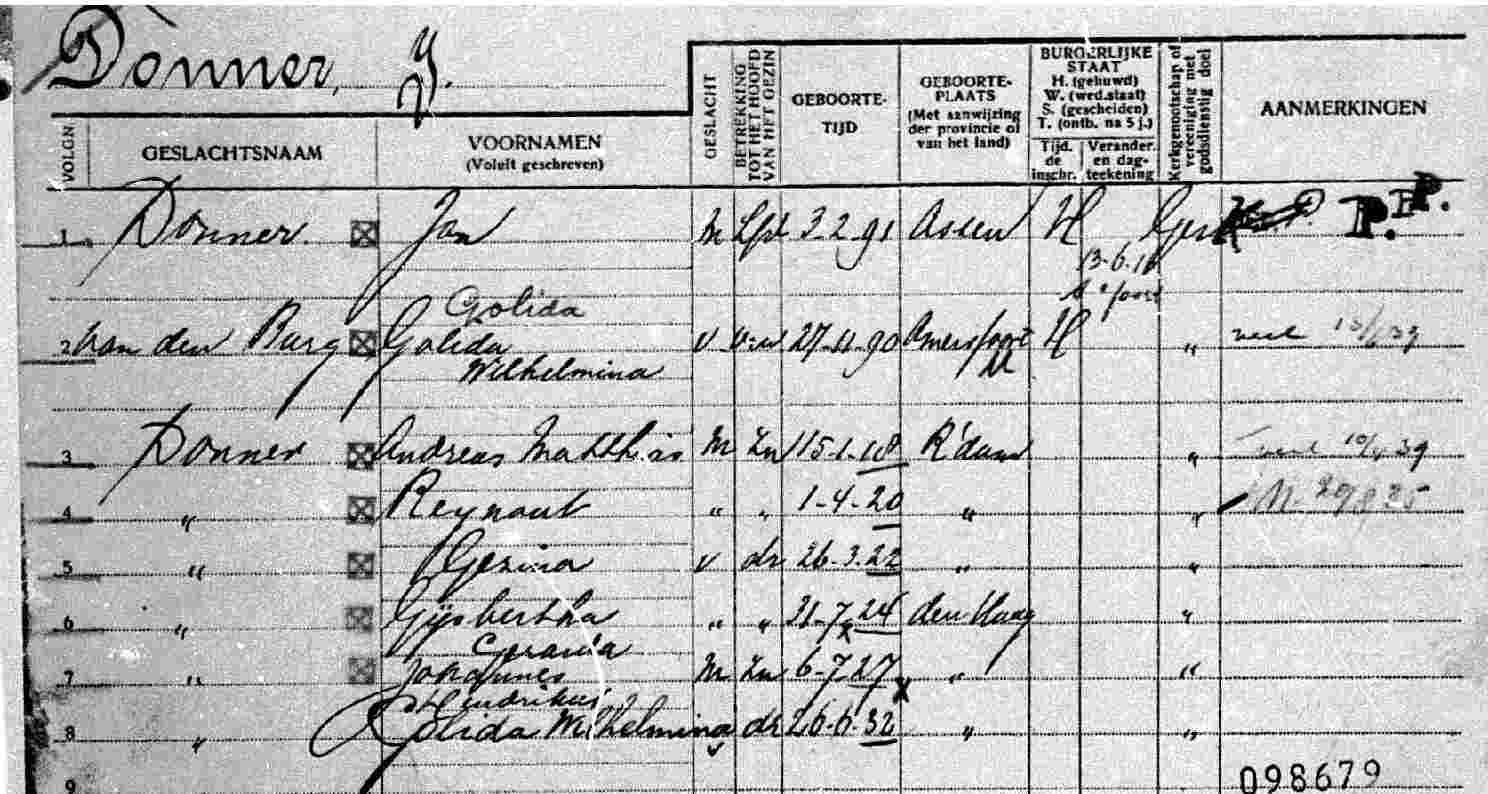 Donner, J.
VOLGN
GESLACHTSNAAM
VOORNAMEN
(Voluit geschreven)
GESLACHT
BETREKKING
TOT HET HOOFD
VAN HET GEZIN
GEBOORTE-
TIJD
GEBOORTE-
PLAATS
(Met aanwijzing
der provincie of
van het land)
BURGERLIJKE
STAAT
H. (gehuwd)
W. (wed.staat)
S. (gescheiden)
T. (ontb. na 5 j.)
Tijd.
de
inschr.
Verander.
en dag-
teekening
Kerkgenootschap of
vereeniging met
godsdienstig doel
AANMERKINGEN
1 Donner Jan M Hfd 3-2-91 Assen H P.P.
13-6-16
A'foort
Golida
2 van den Burg Golida v v:w 27-11-90 Amersfoort H "
Wilhelmina
3 Donner Andreas Matthias M Zn 15-1-18 R'dam "
4 " Reynout " " 1-4-20 " "
5 " Gezina v dr 26-3-22 " "
6 " Gijsbertha " " 31-7-24 den Haag "
7 " Johannes M Zn 6-7-27 " "
Hendrikus
8 " Golida Wilhelmina v dr 26-6-32 " "
9
098679